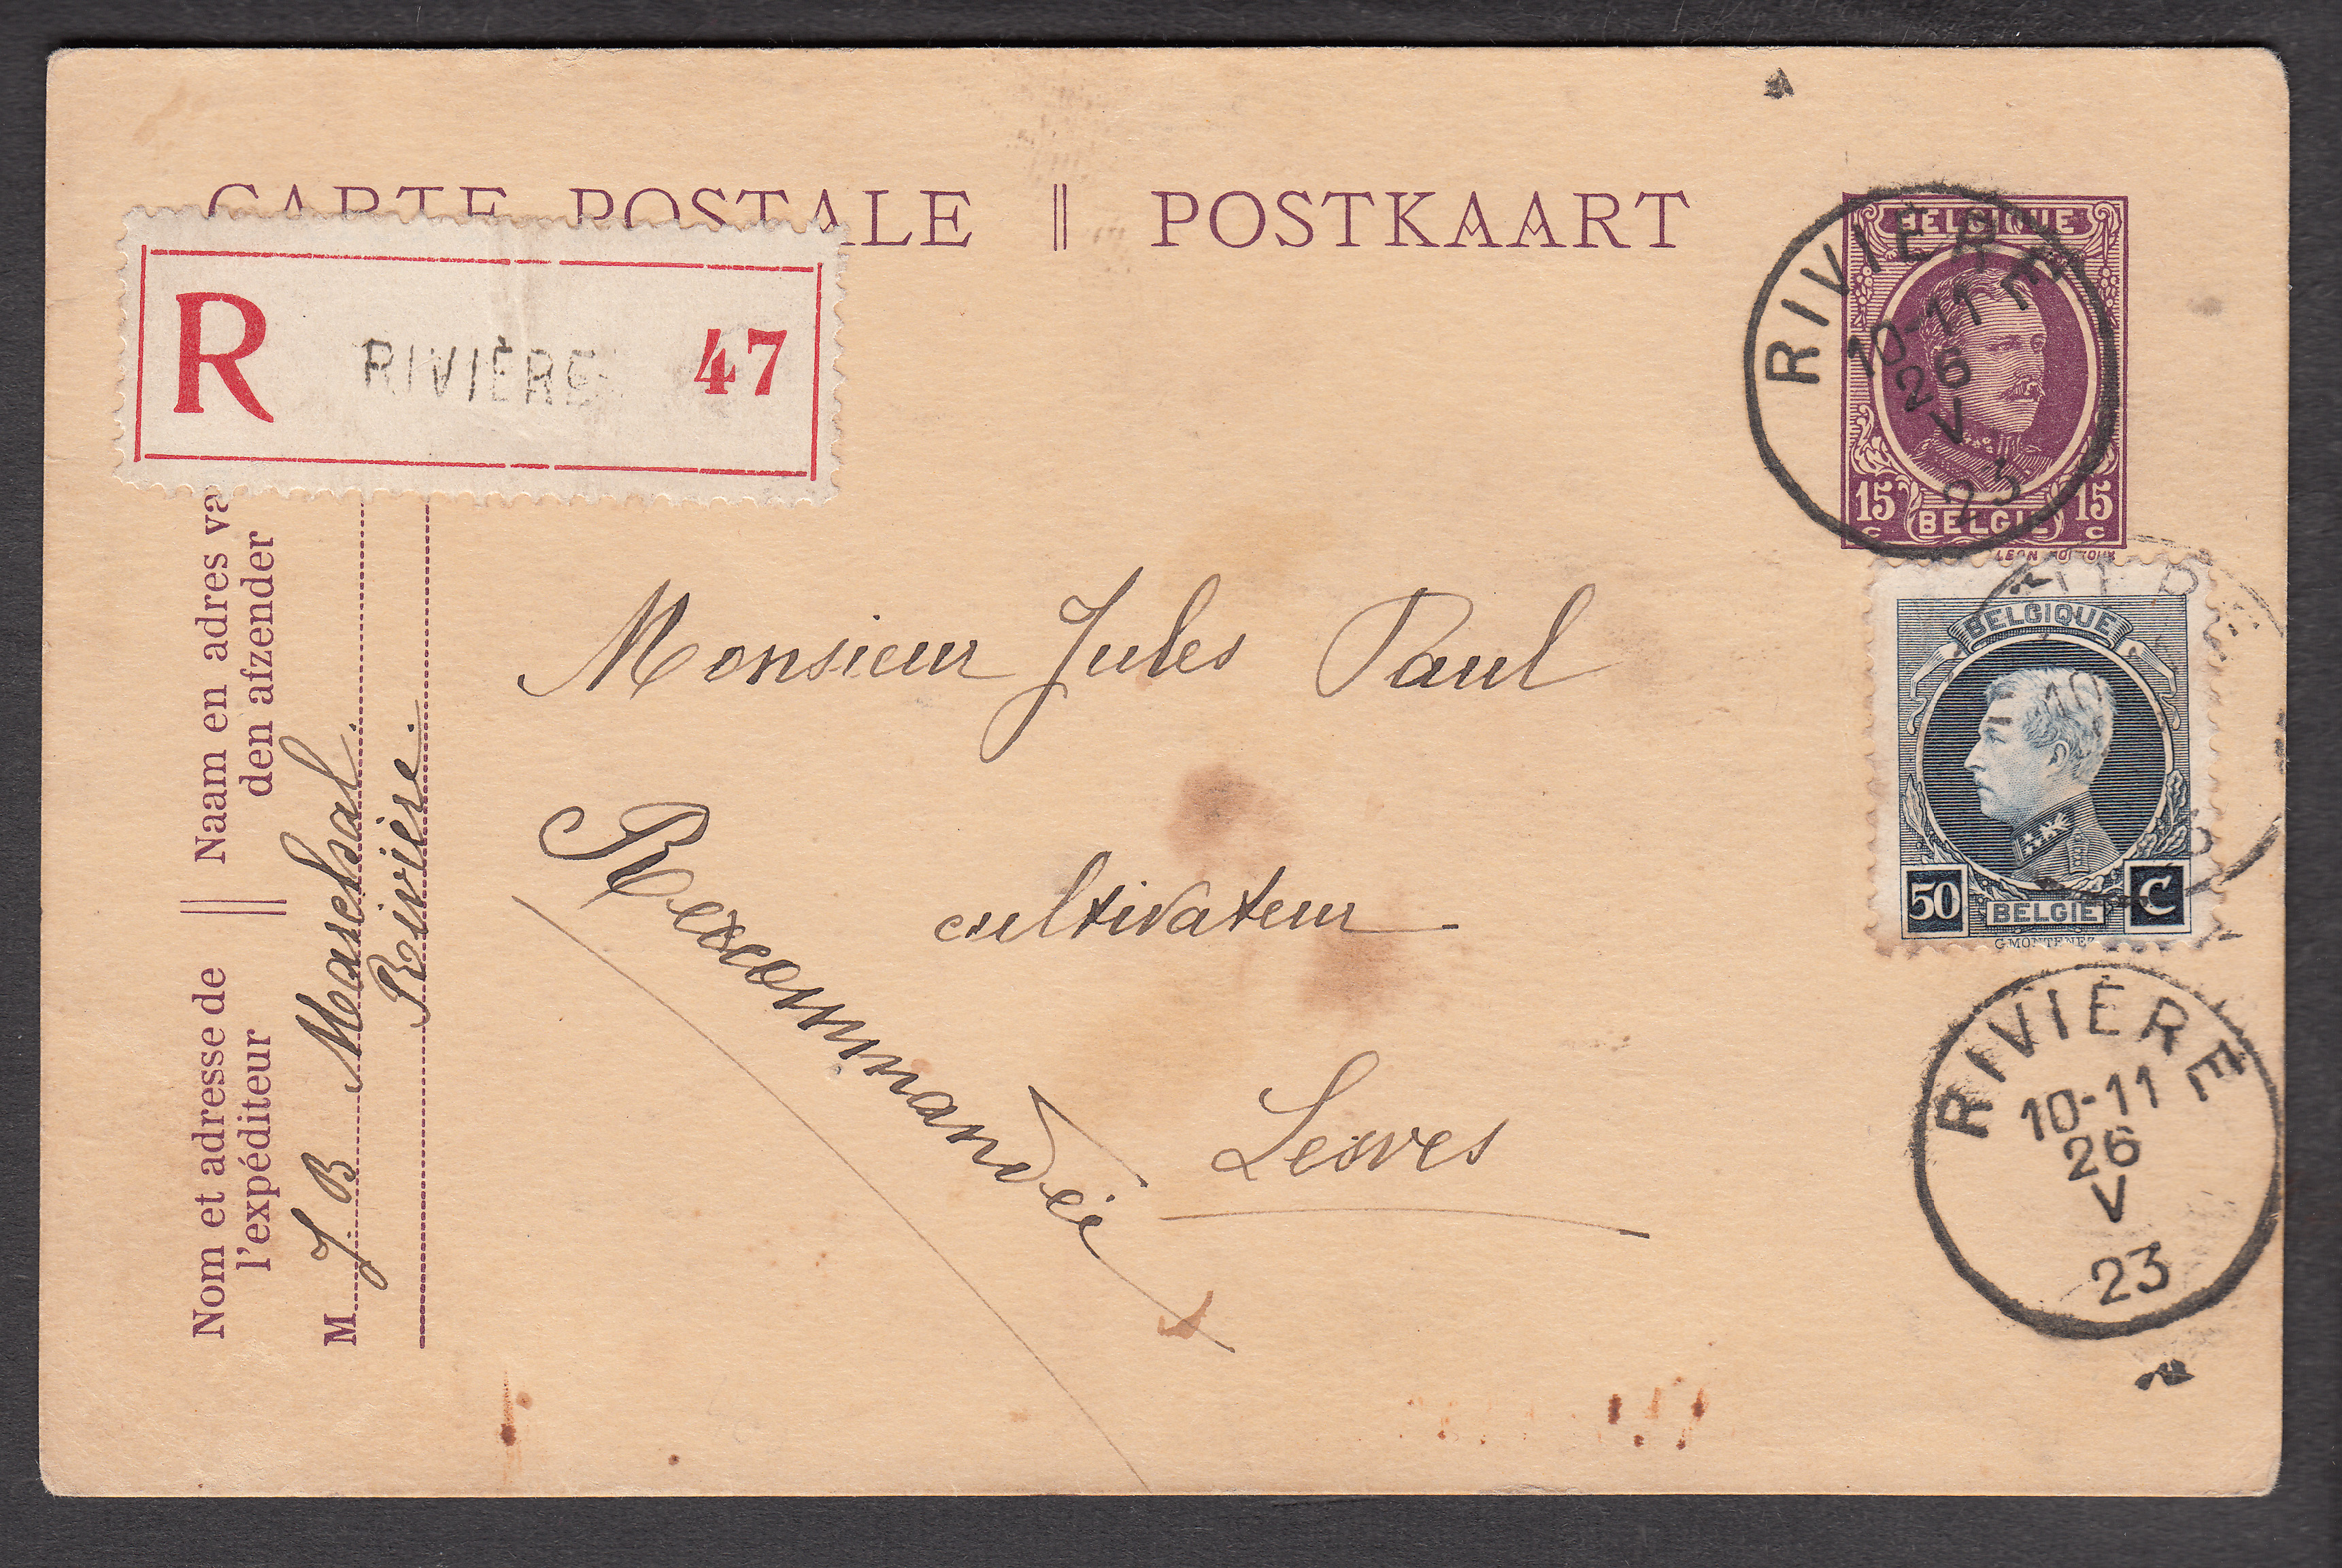 CARTE POSTALE || POSTKAART
R RIVIÈRE 47
Nom et adresse de || Naam en adres va
l'expéditeur den afzender
M J. B Marechal.
Rivière.
Monsieur Jules Paul
cultivateur
Recommandée
Lesves
BELGIQUE
15 c BELGIE 15 c
RIVIÈRE
10-11
26
V
23
BELGIQUE
50 BELGIE C
G·MONTENEZ
RIVIÈRE
10-11
26
V
23